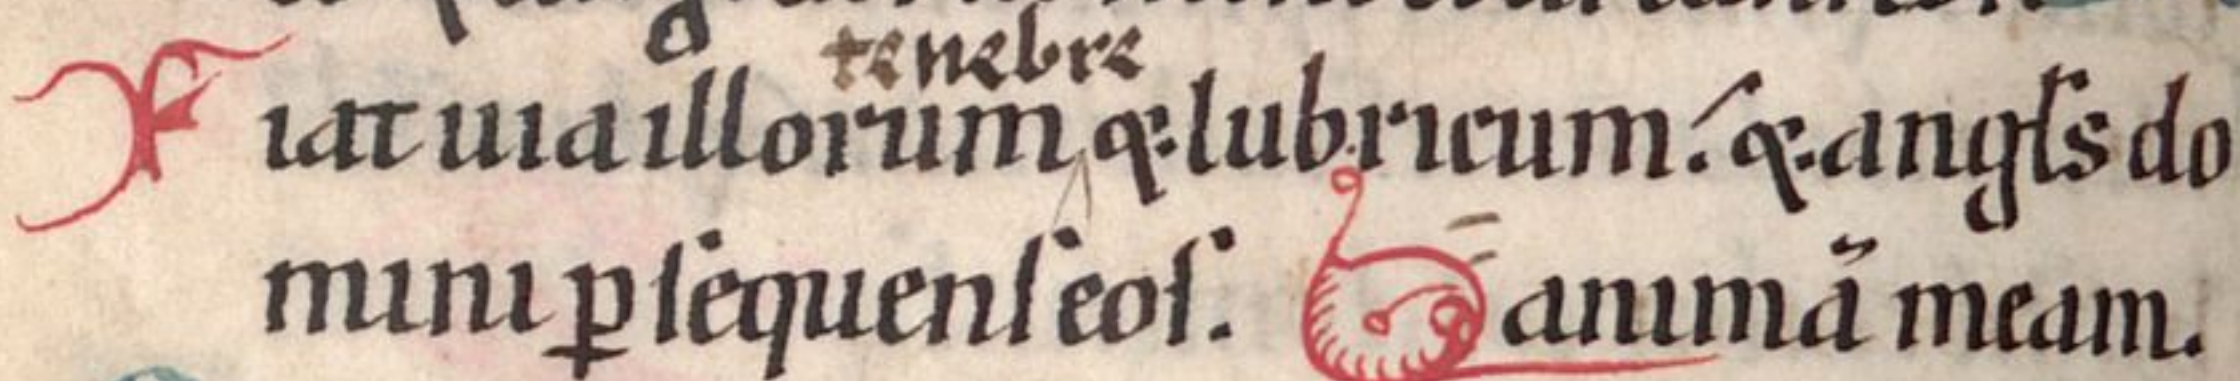 tenebre
Fiat uia illorum q; lubricum. q; angłs do
mini ꝑsequens eos. animā meam.